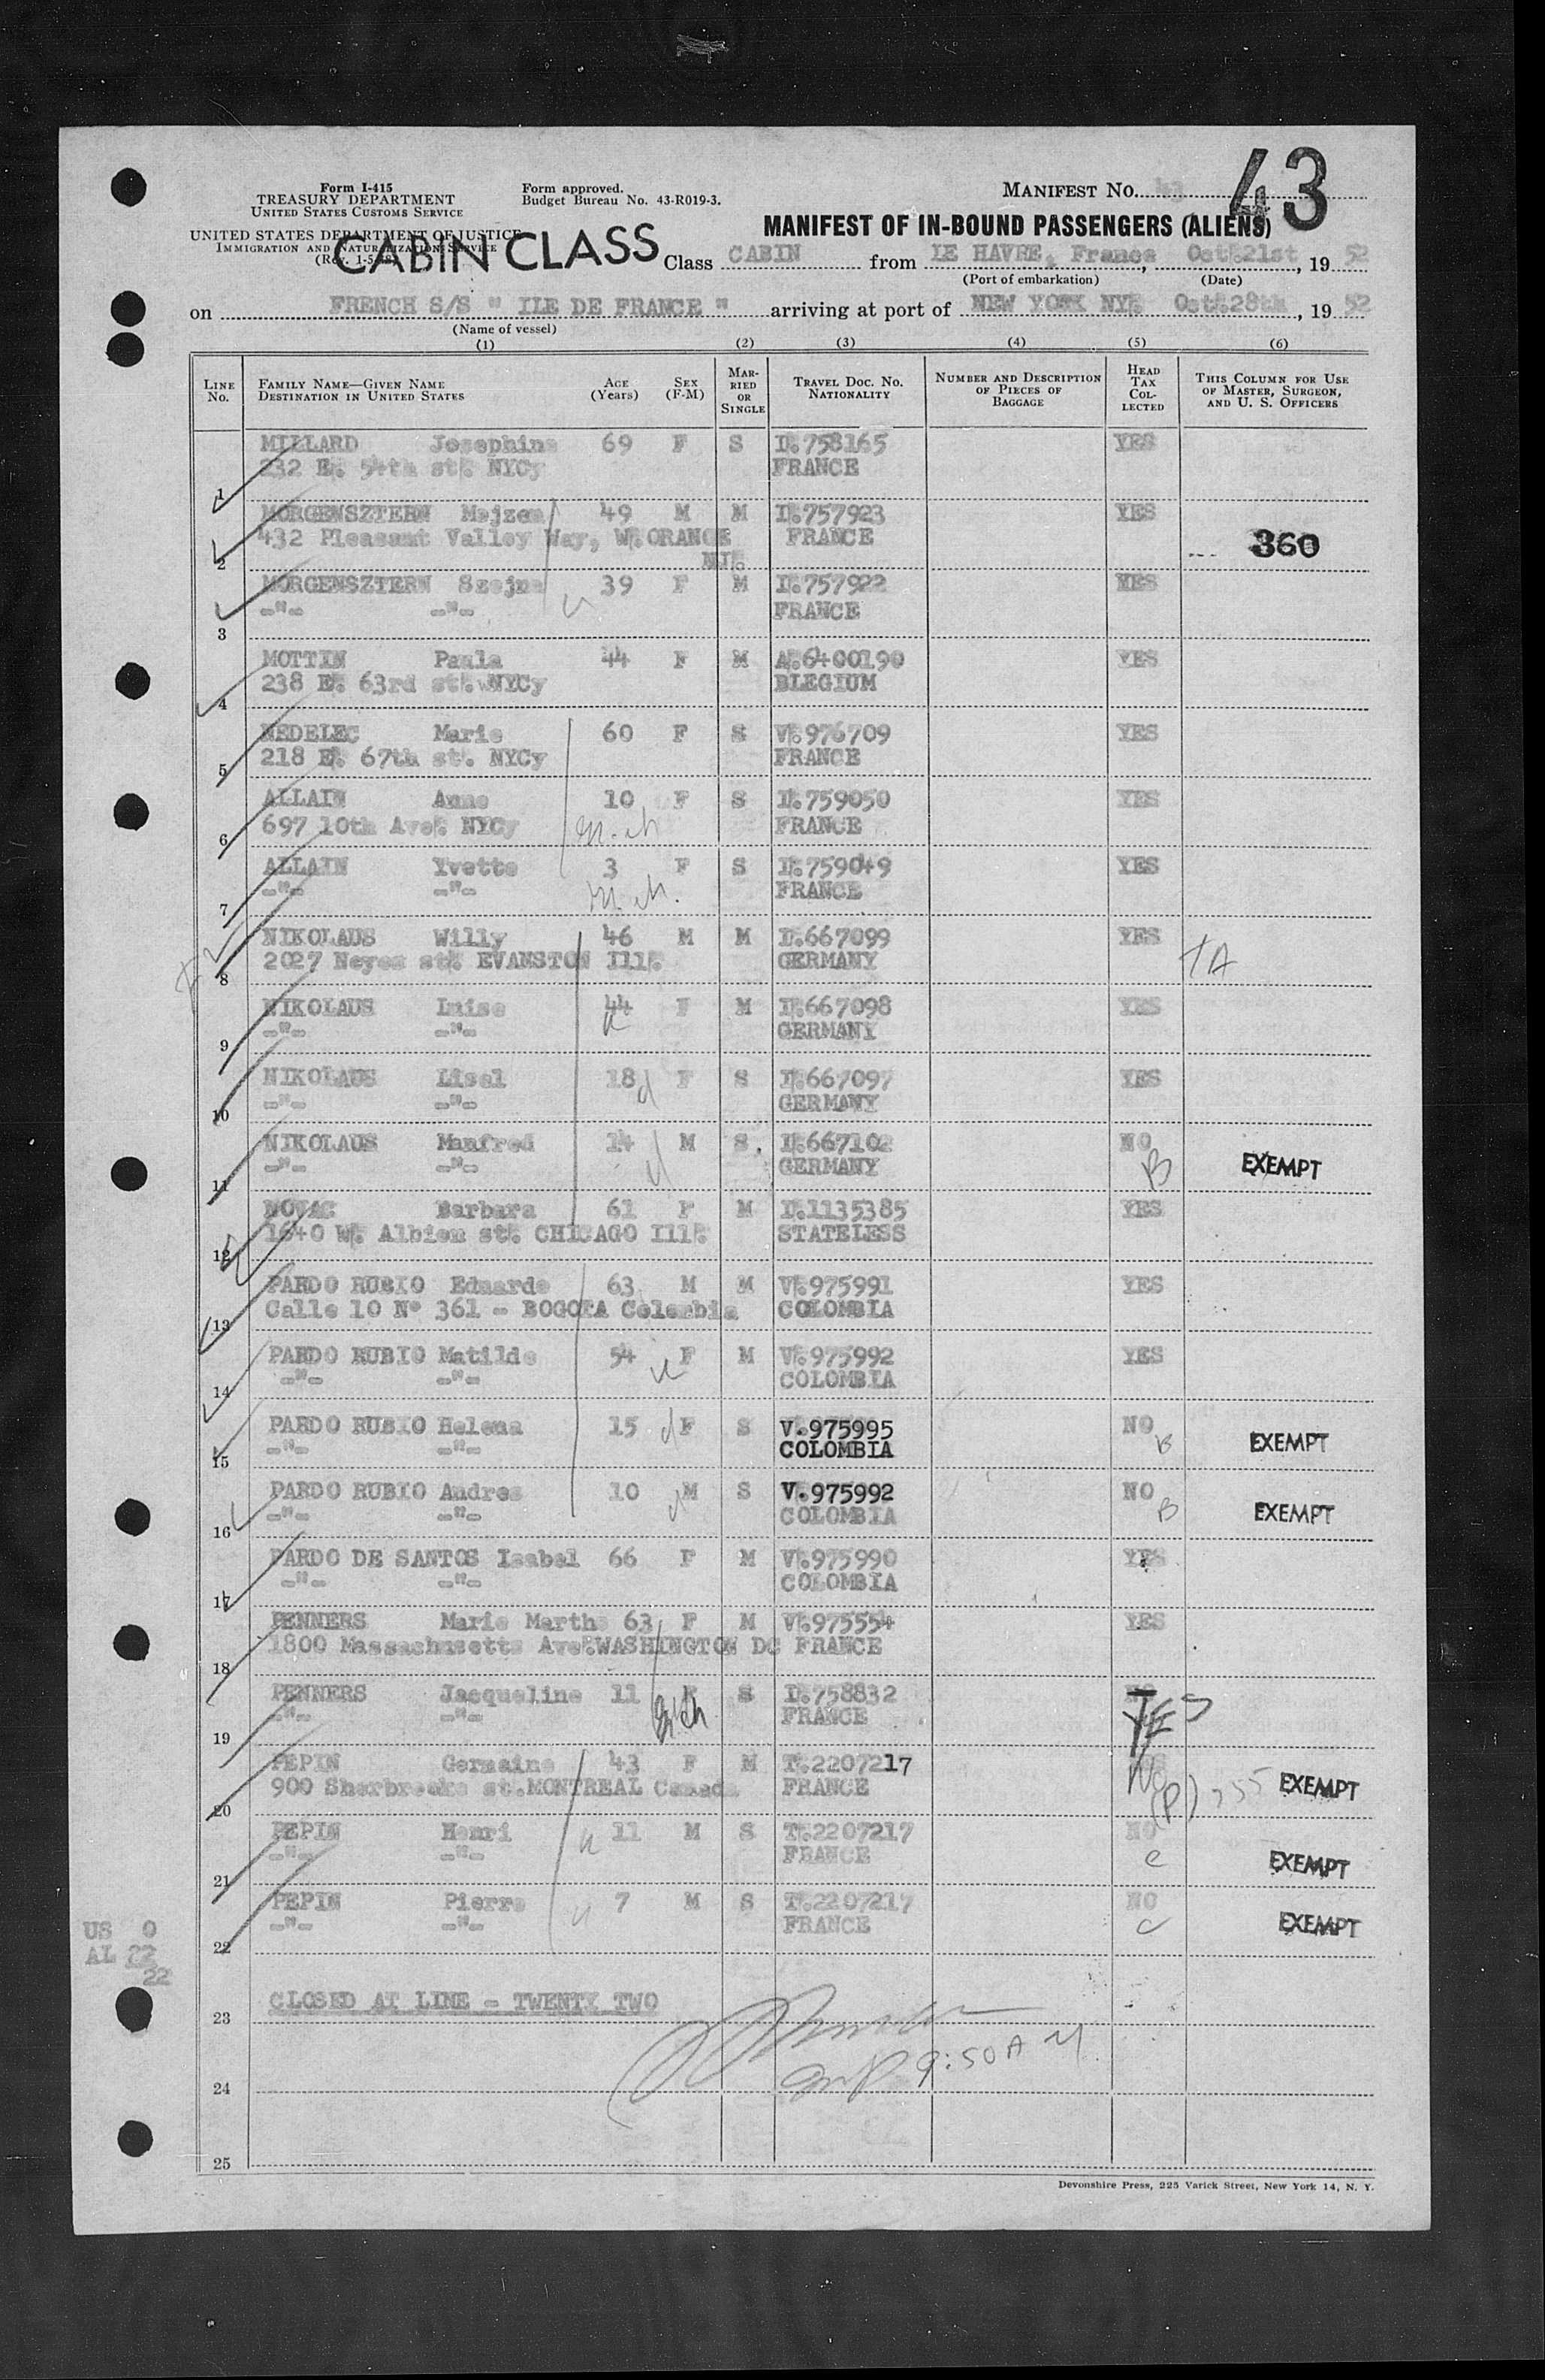 43
Form I-415
TREASURY DEPARTMENT
UNITED STATES CUSTOMS SERVICE
Form approved.
Budget Bureau No. 43-R019-3.
MANIFEST NO. 43
UNITED STATES DEPARTMENT OF JUSTICE
IMMIGRATION AND NATURALIZATION SERVICE
MANIFEST OF IN-BOUND PASSENGERS (ALIENS)
CABIN CLASS
Class CABIN from LE HAVRE, France, Oct. 21st, 19 52
(Port of embarkation) (Date)
on FRENCH S/S " ILE DE FRANCE " arriving at port of NEW YORK NY. Oct. 28th, 19 52
(Name of vessel)
(1) (2) (3) (4) (5) (6)
LINE No. FAMILY NAME—GIVEN NAME DESTINATION IN UNITED STATES AGE (Years) SEX (F-M) MARRIED OR SINGLE TRAVEL DOC. NO. NATIONALITY NUMBER AND DESCRIPTION OF PIECES OF BAGGAGE HEAD TAX COLLECTED THIS COLUMN FOR USE OF MASTER, SURGEON, AND U. S. OFFICERS
1 MILLARD Josephine 69 F S I.758165 YES
232 E. 54th st. NYCy FRANCE
2 MORGENSZTERN Mojzem 49 M M I.757923 YES
432 Pleasant Valley Way, W. ORANGE NJ. FRANCE 360
3 MORGENSZTERN Szejna 39 F M I.757922 YES
-"- -"- FRANCE
4 MOTTIN Paula 44 F M A.6400190 YES
238 E. 63rd st. NYCy BLEGIUM
5 NEDELEC Marie 60 F S V.976709 YES
218 E. 67th st. NYCy FRANCE
6 ALLAIN Anne 10 F S I.759050 YES
697 10th Ave. NYCy FRANCE
7 ALLAIN Yvette 3 F S I.759049 YES
-"- -"- FRANCE
8 NIKOLAUS Willy 46 M M I.667099 YES
2027 Noyes st. EVANSTON Ill. GERMANY TA
9 NIKOLAUS Luise 44 F M I.667098 YES
-"- -"- GERMANY
10 NIKOLAUS Lisel 18 F S I.667097 YES
-"- -"- GERMANY
11 NIKOLAUS Manfred 14 M S. I.667102 NO
-"- -"- GERMANY B EXEMPT
12 NOVAC Barbara 61 F M I.1135385 YES
1640 W. Albion st. CHICAGO Ill. STATELESS
13 PARDO RUBIO Eduardo 63 M M V.975991 YES
Calle 10 N° 361 - BOGOTA Colombia COLOMBIA
14 PARDO RUBIO Matilde 54 F M V.975992 YES
-"- -"- COLOMBIA
15 PARDO RUBIO Helena 15 F S V.975995 NO
-"- -"- COLOMBIA B EXEMPT
16 PARDO RUBIO Andres 10 M S V.975992 NO
-"- -"- COLOMBIA B EXEMPT
17 PARDO DE SANTOS Isabel 66 F M V.975990 YES
-"- -"- COLOMBIA
18 PENNERS Marie Marthe 63 F M V.975554 YES
1800 Massachusetts Ave. WASHINGTON DC FRANCE
19 PENNERS Jacqueline 11 F S I.758832 YES
-"- -"- FRANCE
20 PEPIN Germaine 43 F M T.2207217 No
900 Sherbrooke st. MONTREAL Canada FRANCE (P) EXEMPT
21 PEPIN Henri 11 M S T.2207217 NO
-"- -"- FRANCE c EXEMPT
22 PEPIN Pierre 7 M S T.2207217 NO
-"- -"- FRANCE c EXEMPT
US 0
AL 22
22
23 CLOSED AT LINE - TWENTY TWO
24 9:50 AM
25
Devonshire Press, 225 Varick Street, New York 14, N. Y.